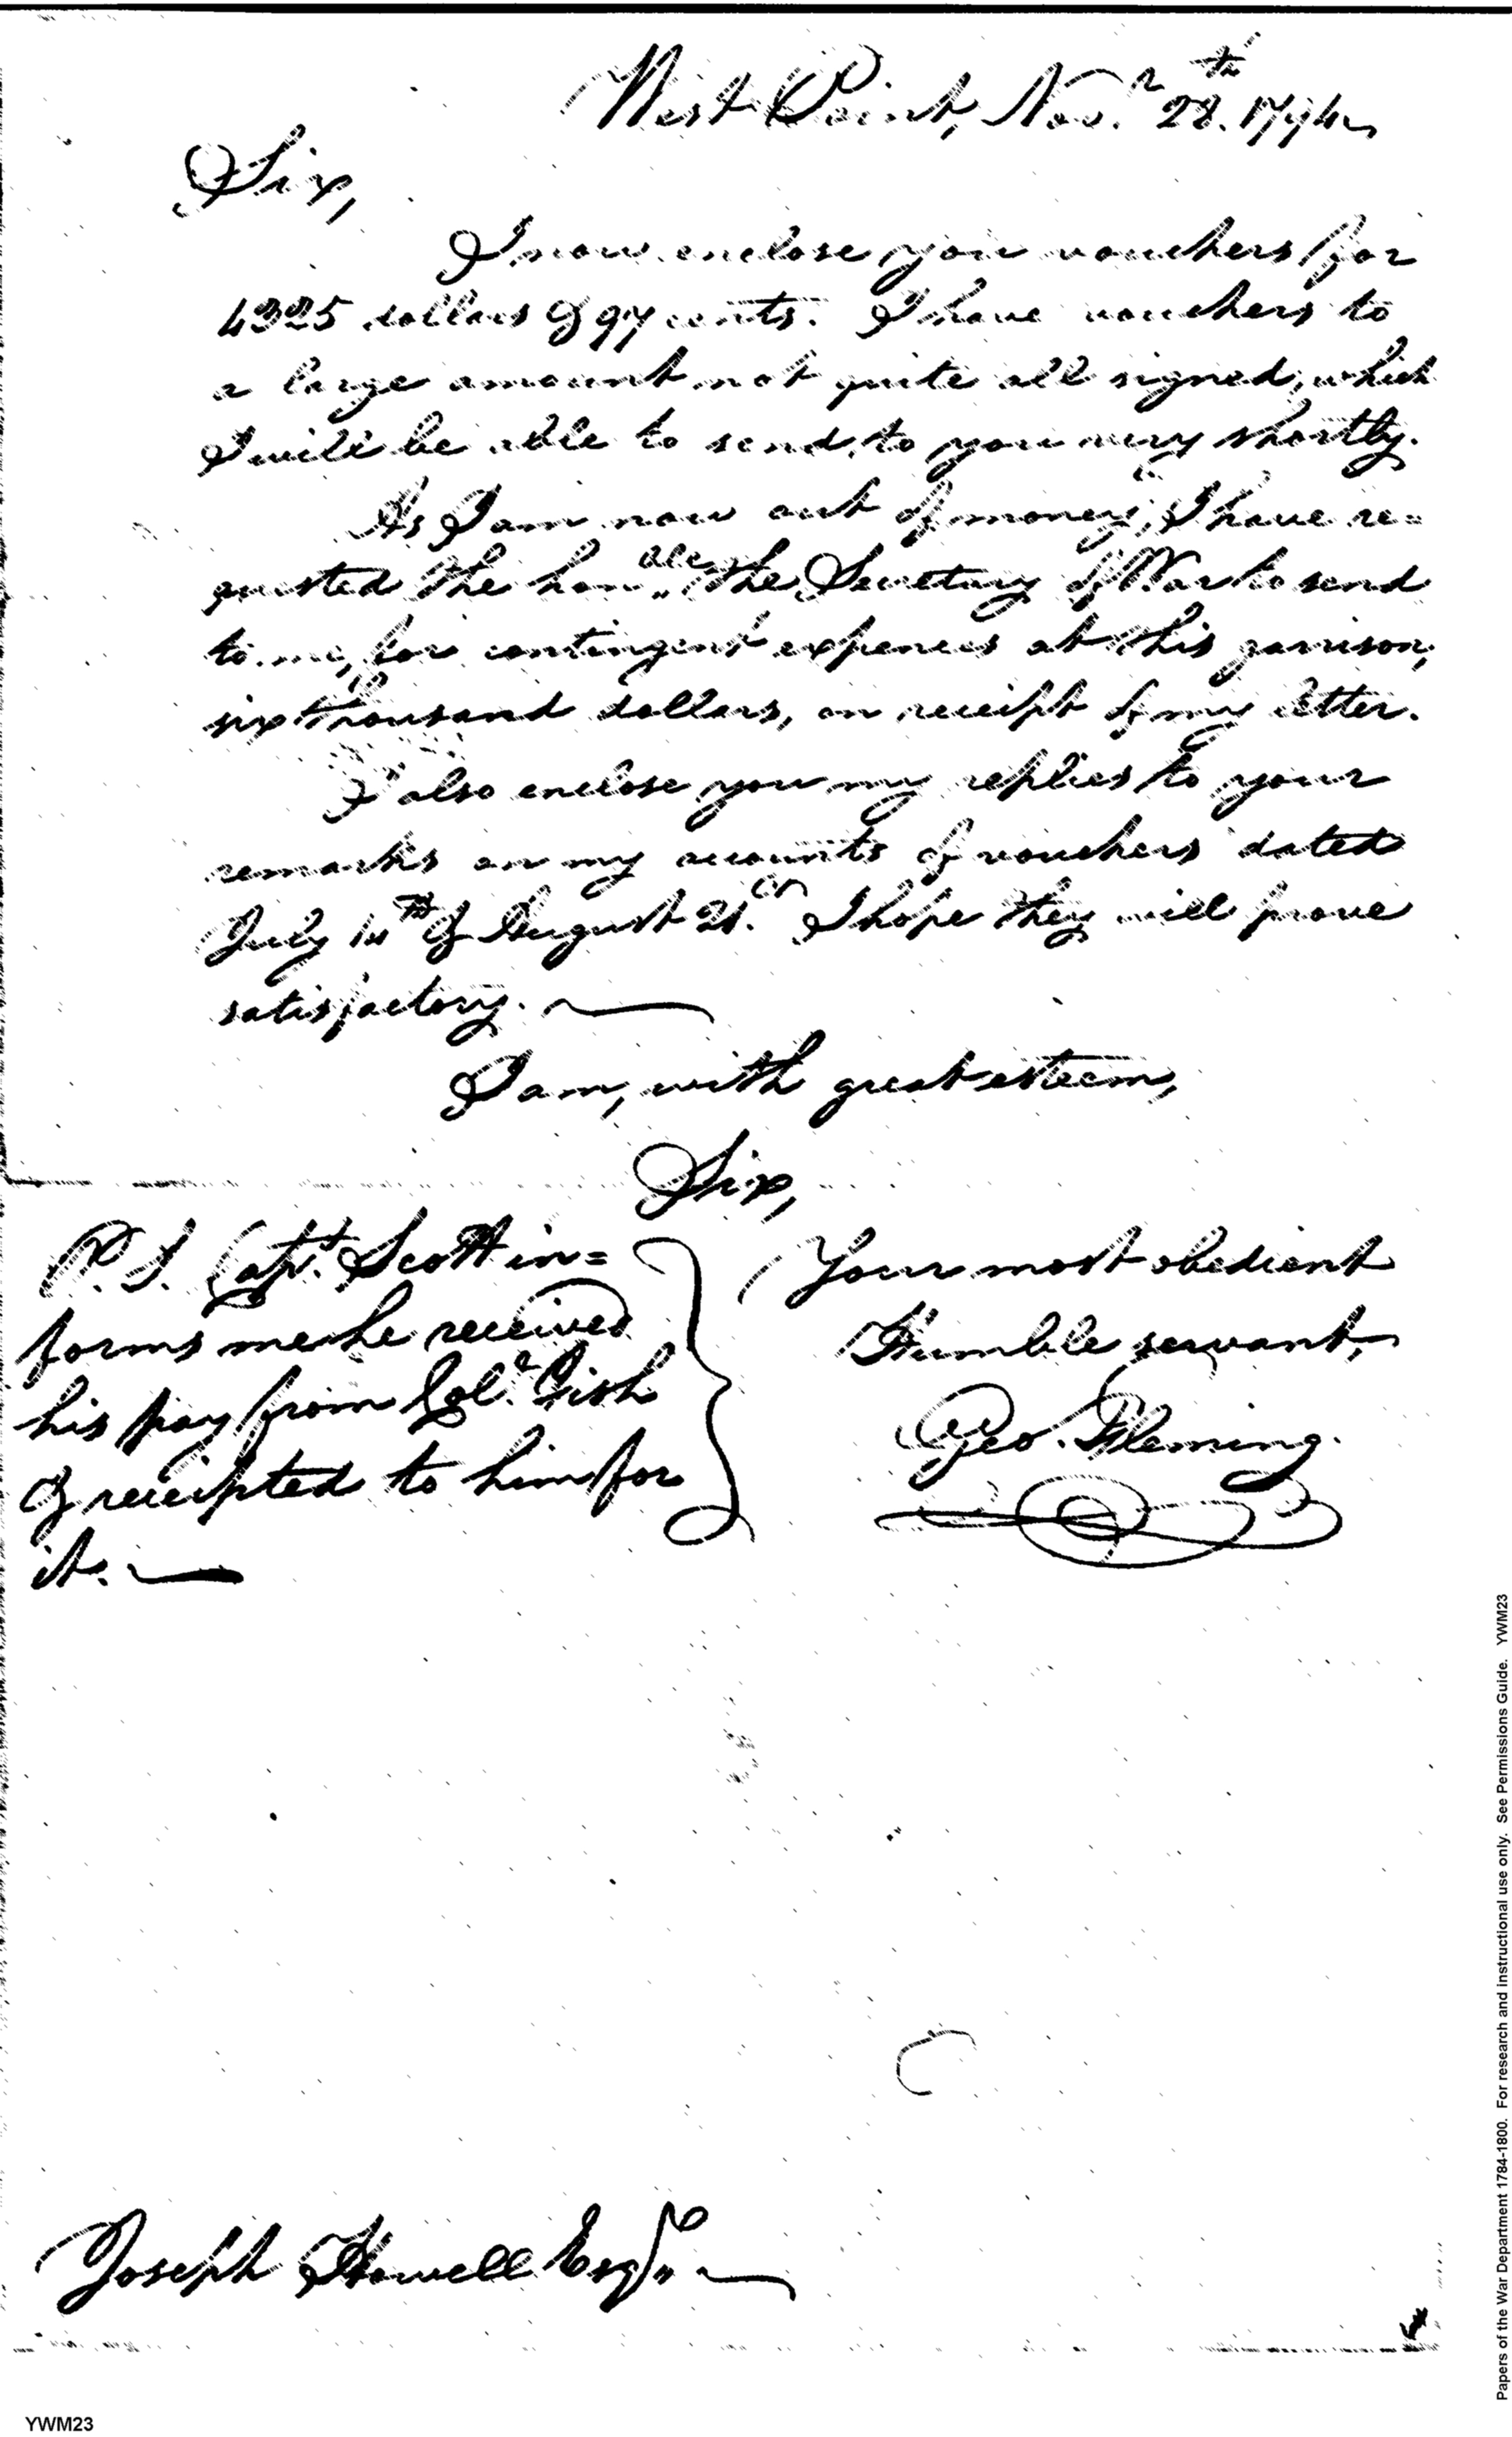 West Point, Nov.r 28.th 1794
Sir,
I now enclose you vouchers for
4325 dollars & 97 cents. I have vouchers to
a large amount not quite all signed, which
I will be able to send to you very shortly.
As I am now out of money, I have re=
quested the hon.able the Secretary of War to send
to me, for contingent expences at this garrison,
six thousand dollars, on receipt of my letter.
I also enclose you my replies to your
remarks on my accounts & vouchers dated
July 14th & August 21. I hope they will prove
satisfactory.
I am, with great esteem,
Sir,
Your most obedient
Humble servant,
Geo. Fleming.
P.S. Capt. Scott in=
forms me he received
his pay from Col. Fish
& receipted to him for
it.
Joseph Howell Esqr.
YWM23
Papers of the War Department 1784-1800. For research and instructional use only. See Permissions Guide. YWM23